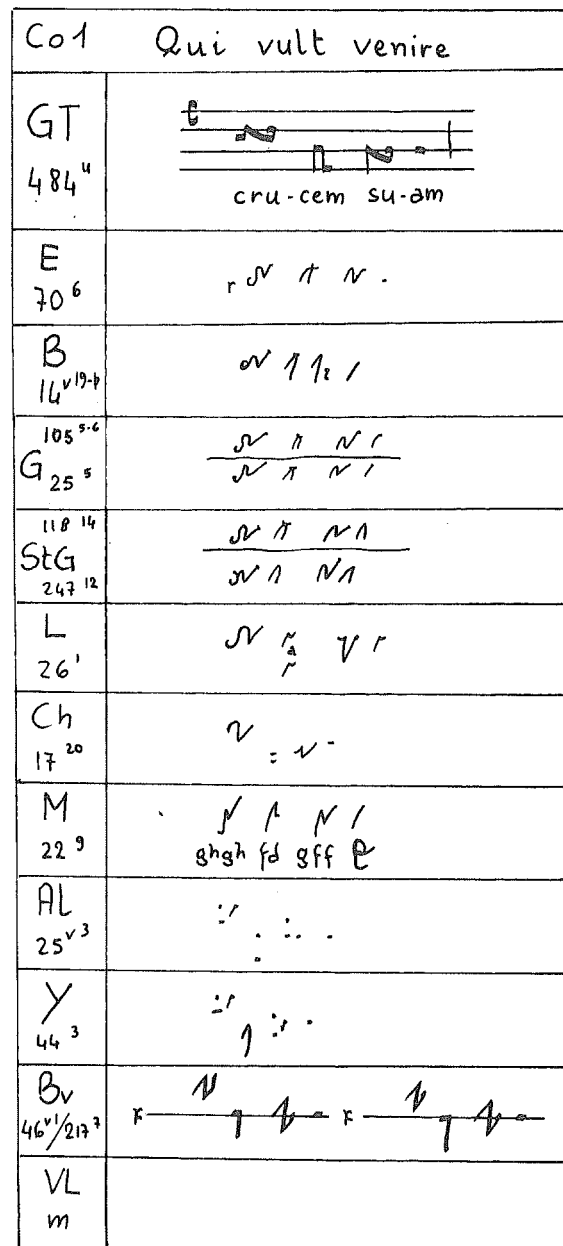 Co1 Qui vult venire
GT
484⁴
cru-cem su-am
E
70⁶
B
14ᵛ
G
105⁵⁻⁶
25⁵
StG
118¹⁴
247¹²
L
26¹
Ch
17²⁰
M
22⁹
ghgh fd gff e
AL
25ᵛ³
Y
44³
Bv
46ᵛ¹/217⁷
VL
m